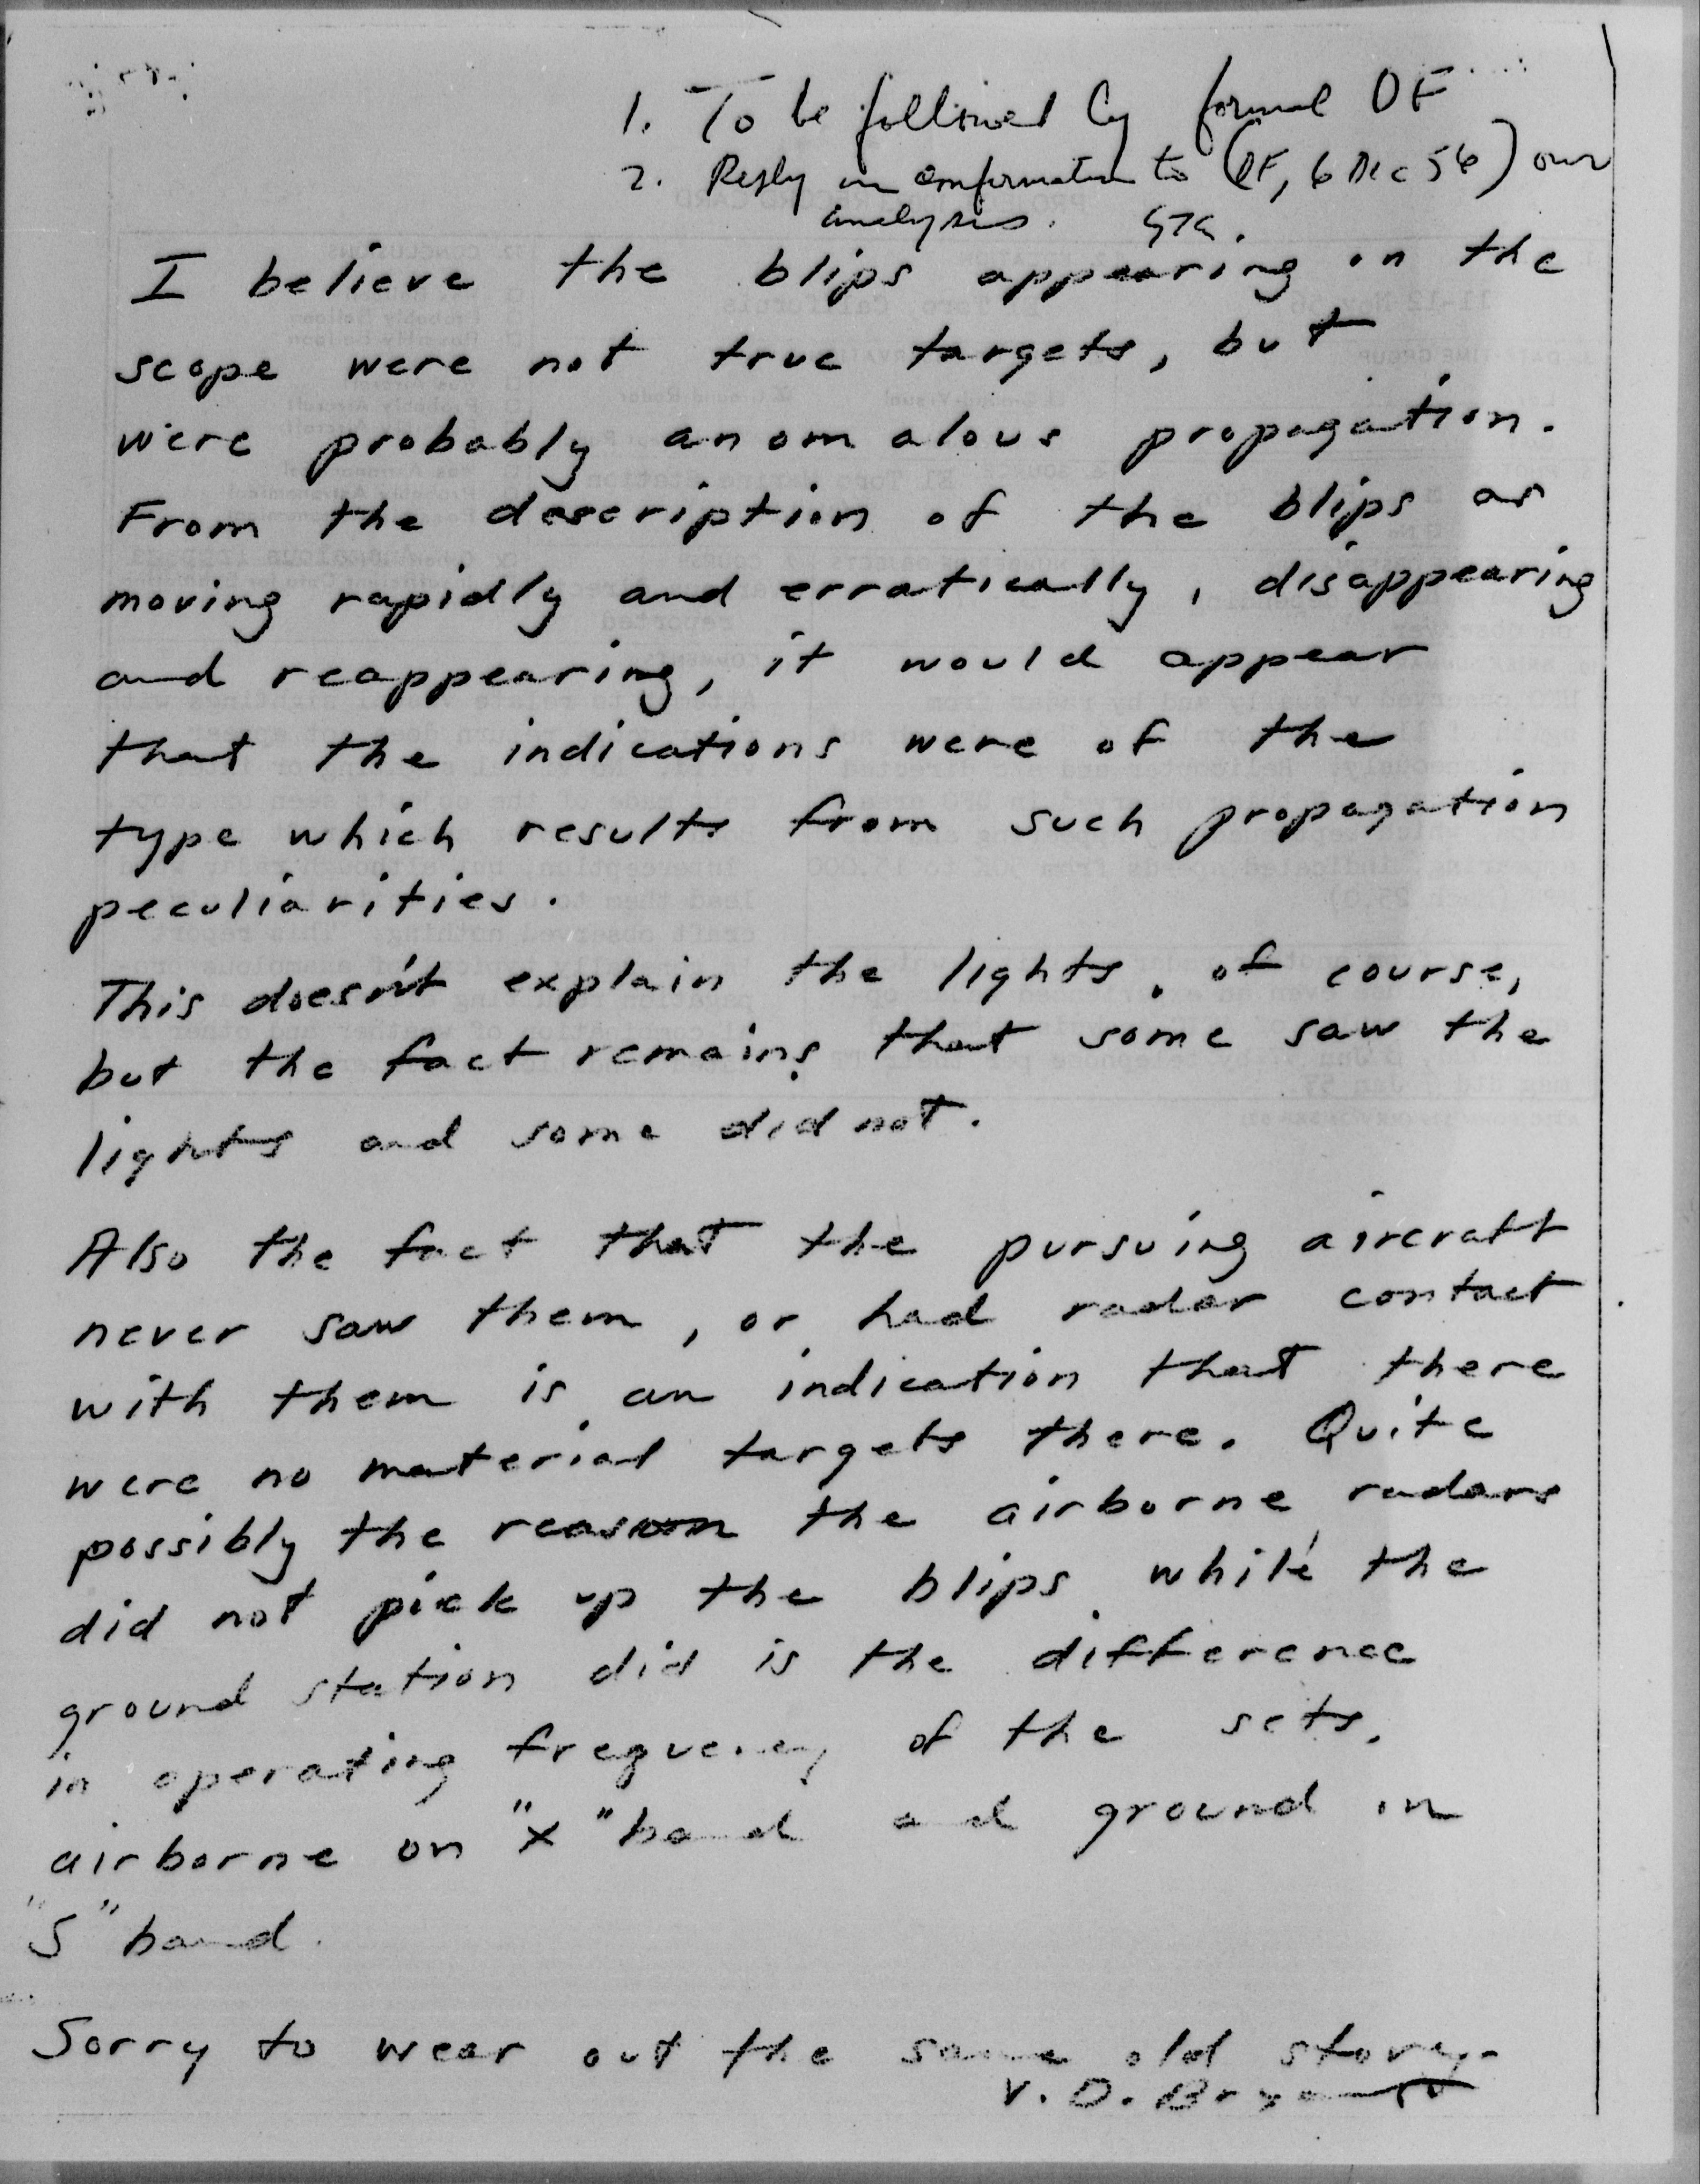 1. To be followed by formal DF
2. Reply in confirmation to (DF, 6 Dec 56) our
analysis.
I believe the blips appearing on the
scope were not true targets, but
were probably anomalous propagation.
From the description of the blips as
moving rapidly and erratically, disappearing
and reappearing, it would appear
that the indications were of the
type which results from such propagation
peculiarities.
This doesn't explain the lights, of course,
but the fact remains that some saw the
lights and some did not.
Also the fact that the pursuing aircraft
never saw them, or had radar contact
with them is an indication that there
were no material targets there. Quite
possibly the reason the airborne radars
did not pick up the blips while the
ground station did is the difference
in operating frequency of the sets.
airborne on "X" band and ground in
"S" band.
Sorry to wear out the same old story.
V. D. Bryant